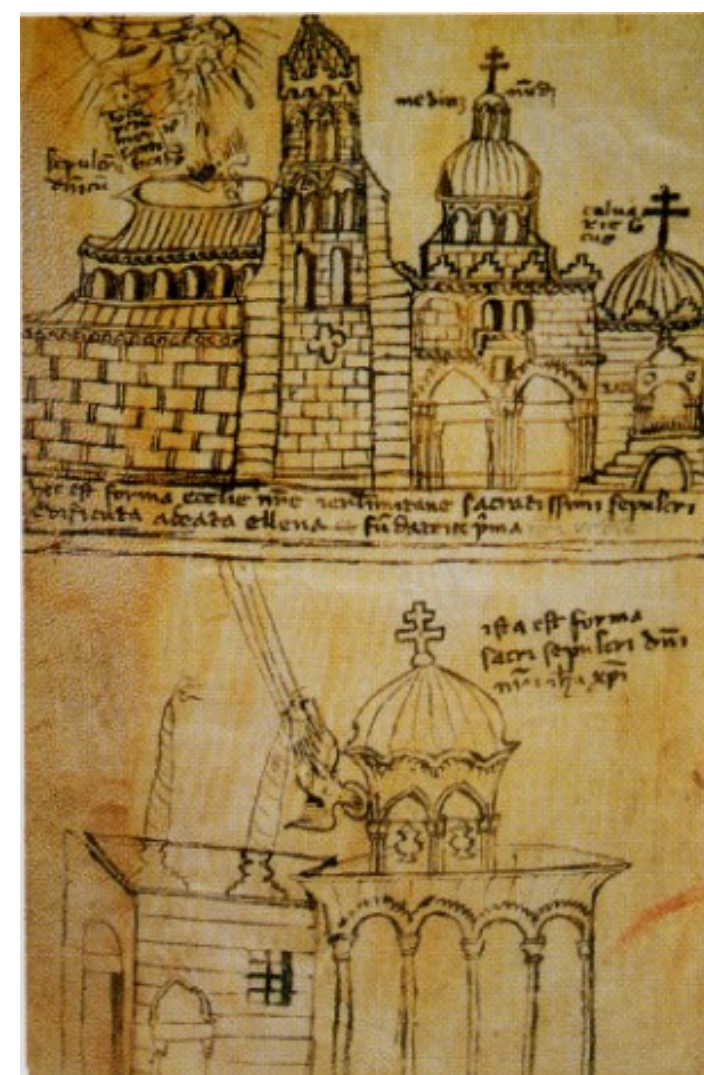 medius mūdi
sepulcrū
dn̄icū
calua
rie lo
cus
hec est forma ecclie nr̄e ierl̄imitane sacratissimi sepulcri
edificata abeata ellena fūdatrice pͥma
ista est forma
sacri sepulcri dn̄i
nr̄i ih̄u xp̄i